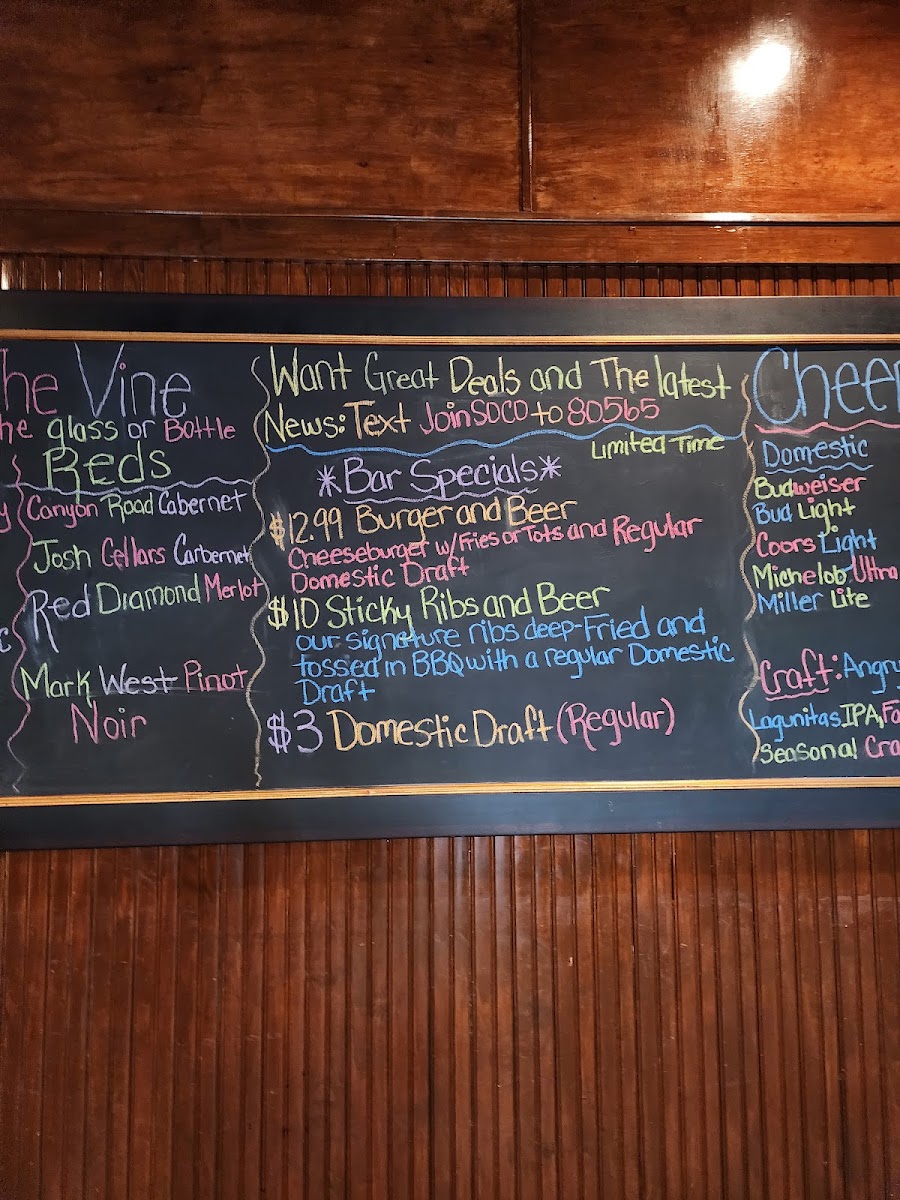 The Vine
the glass or Bottle
Reds
Canyon Road Cabernet
Josh Cellars Carbernet
Red Diamond Merlot
Mark West Pinot
Noir
Want Great Deals and The latest
News: Text JoinSOCO to 80565
Limited Time
*Bar Specials*
$12.99 Burger and Beer
Cheeseburger w/Fries or Tots and Regular
Domestic Draft
$10 Sticky Ribs and Beer
our signature ribs deep-Fried and
tossed in BBQ with a regular Domestic
Draft
$3 Domestic Draft (Regular)
Cheer
Domestic
Budweiser
Bud Light
Coors Light
Michelob Ultra
Miller Lite
Craft: Angry
Lagunitas IPA, Fa
Seasonal Cra